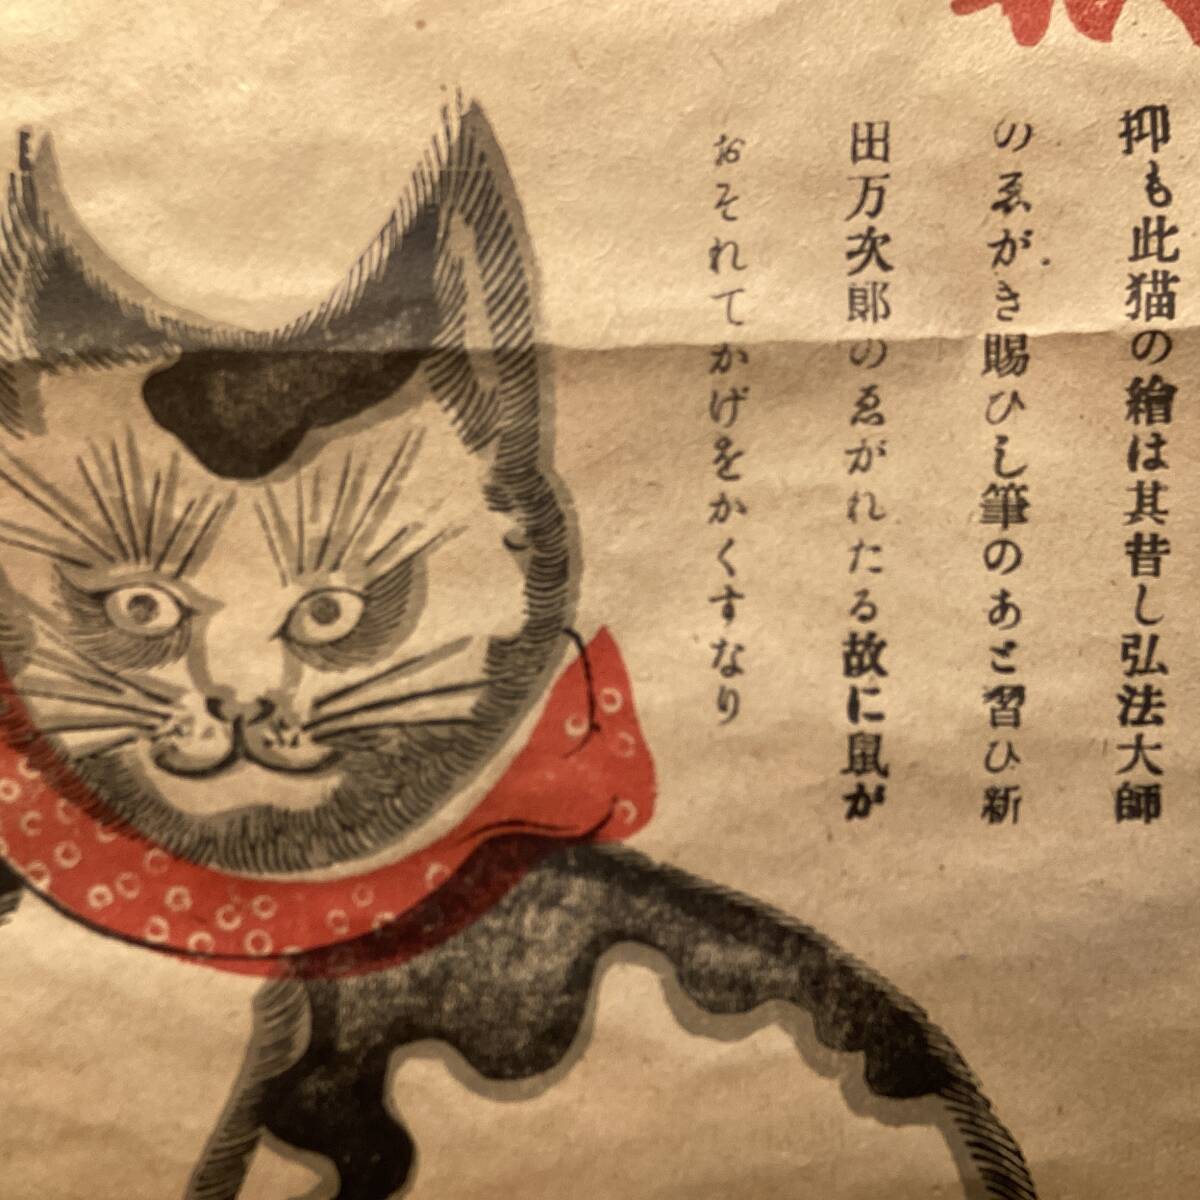 抑も此猫の繪は其昔し弘法大師
のゑがき賜ひし筆のあと習ひ新
田万次郞のゑがれたる故に鼠が
おそれてかげをかくすなり